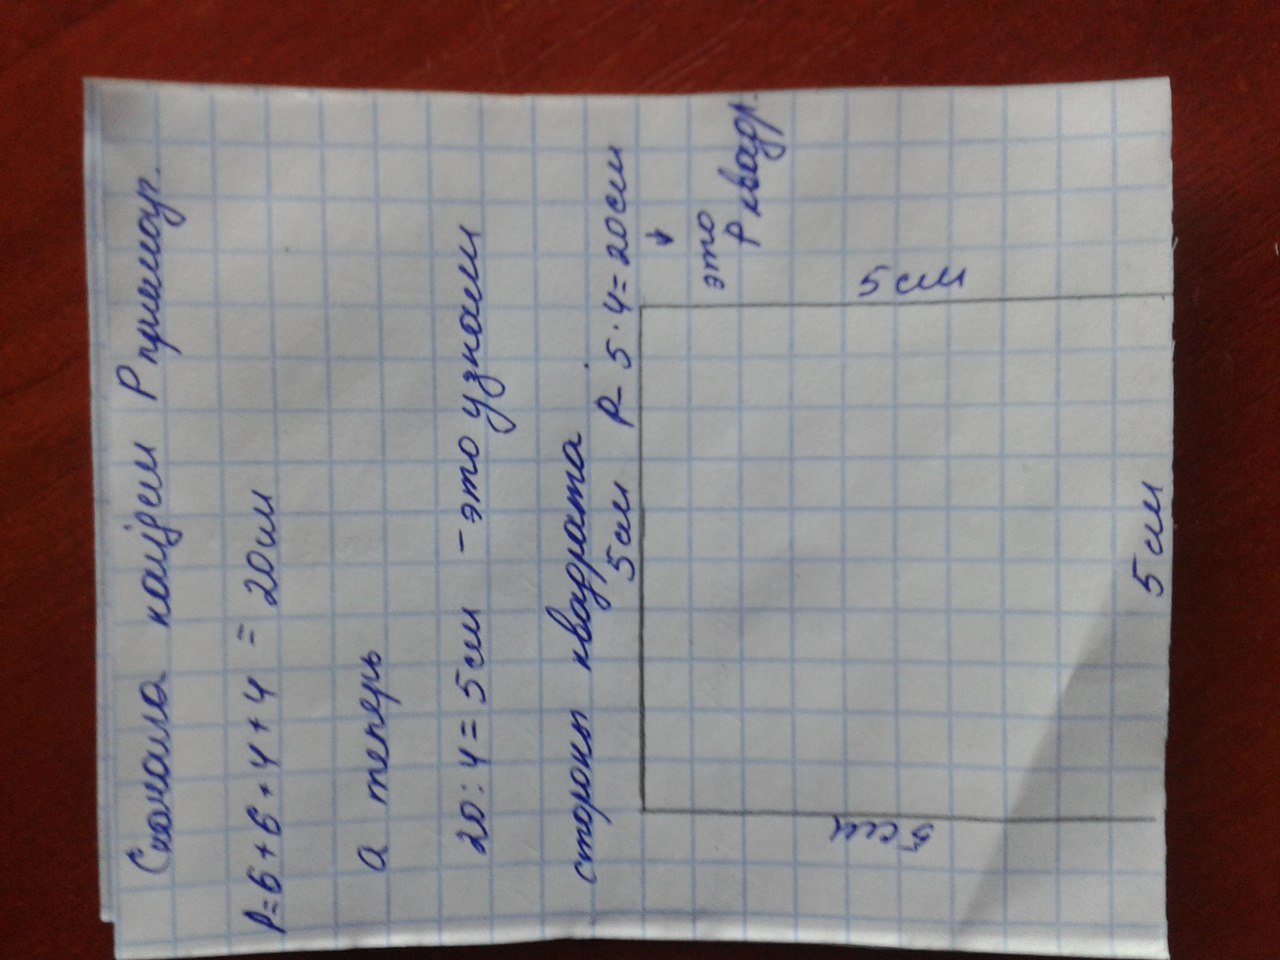 Сначала найдём P прямоуг.
P=6+6+4+4 = 20см
а теперь
20:4=5см - это узнали
стороны квадрата
5см P- 5·4=20см
это
P квадр.
5см
5см
5см